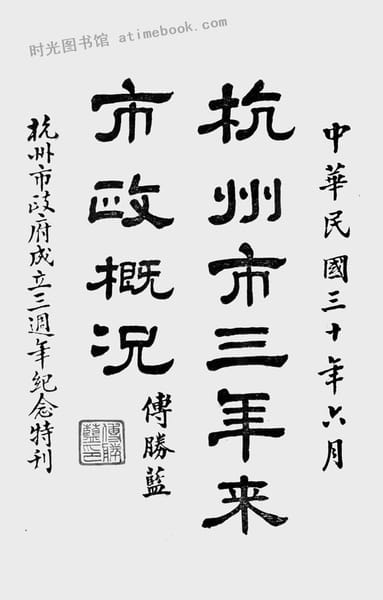 时光图书馆 atimebook.com
中華民國三十年六月
杭州市三年来
市政概况
傅勝藍
傅勝藍印
杭州市政府成立三週年紀念特刊